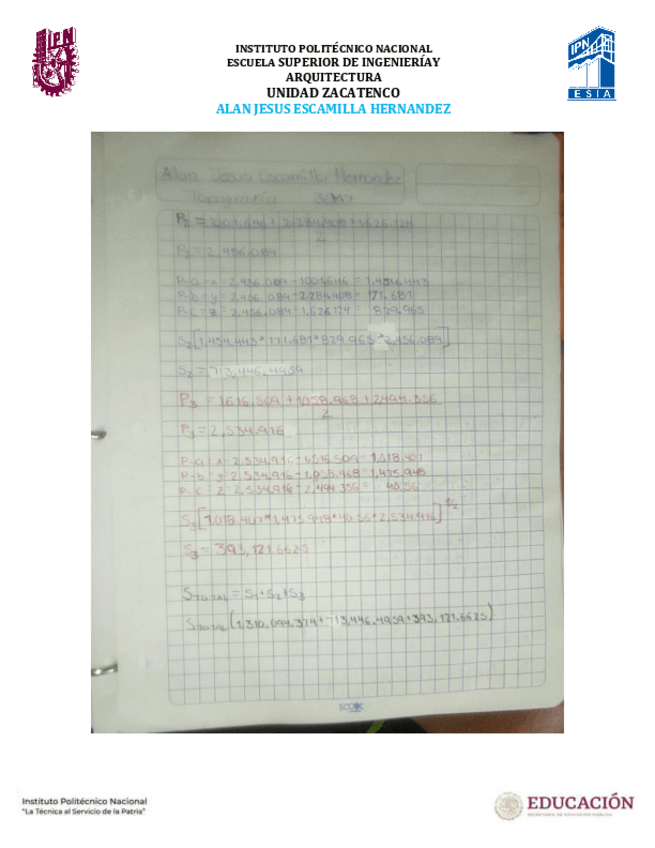 IPN
INSTITUTO POLITÉCNICO NACIONAL
ESCUELA SUPERIOR DE INGENIERÍAY
ARQUITECTURA
UNIDAD ZACATENCO
ALAN JESUS ESCAMILLA HERNANDEZ
IPN
ESIA
Alan Jesus Escamilla Hernandez
Topografía
P₂ = 2,456.089
P-b=y= 2,456.089-2,284.408= 171.681
P-c=z= 2,456.089-1,626.124= 829.965
S₂[1,454.443*171.681*829.965*2,456.089]
S₂=713,446.4959
P₃ = 1,616.509 + 1,058.968 + 2,494.356
2
P₃ = 2,534.916
P-b= y= 2,534.916-1,058.968= 1,475.948
P-c= z= 2,534.916-2,494.356= 40.56
S₃[1,018.407*1,475.948*40.56*2,534.916]
S₃= 393,121.6625
STOTAL = S₁+S₂+S₃
STOTAL(1,310,094.374+713,446.4959+393,121.6625)
Instituto Politécnico Nacional
"La Técnica al Servicio de la Patria"
EDUCACIÓN
SECRETARÍA DE EDUCACIÓN PÚBLICA